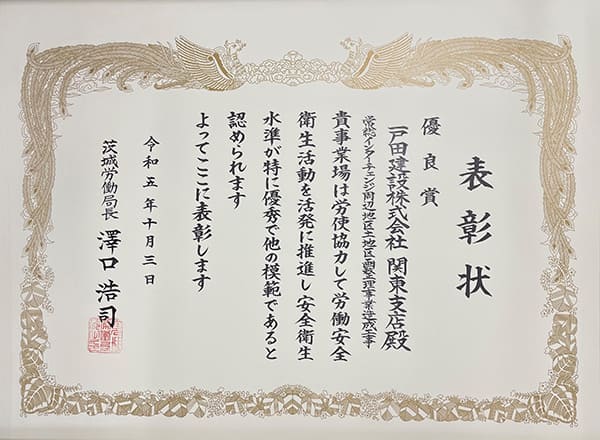 表彰状
優良賞
戸田建設株式会社 関東支店殿
常総インターチェンジ周辺地区土地区画整理事業造成工事
貴事業場は労使協力して労働安全
衛生活動を活発に推進し安全衛生
水準が特に優秀で他の模範であると
認められます
よってここに表彰します
令和五年十月三日
茨城労働局長 澤口浩司